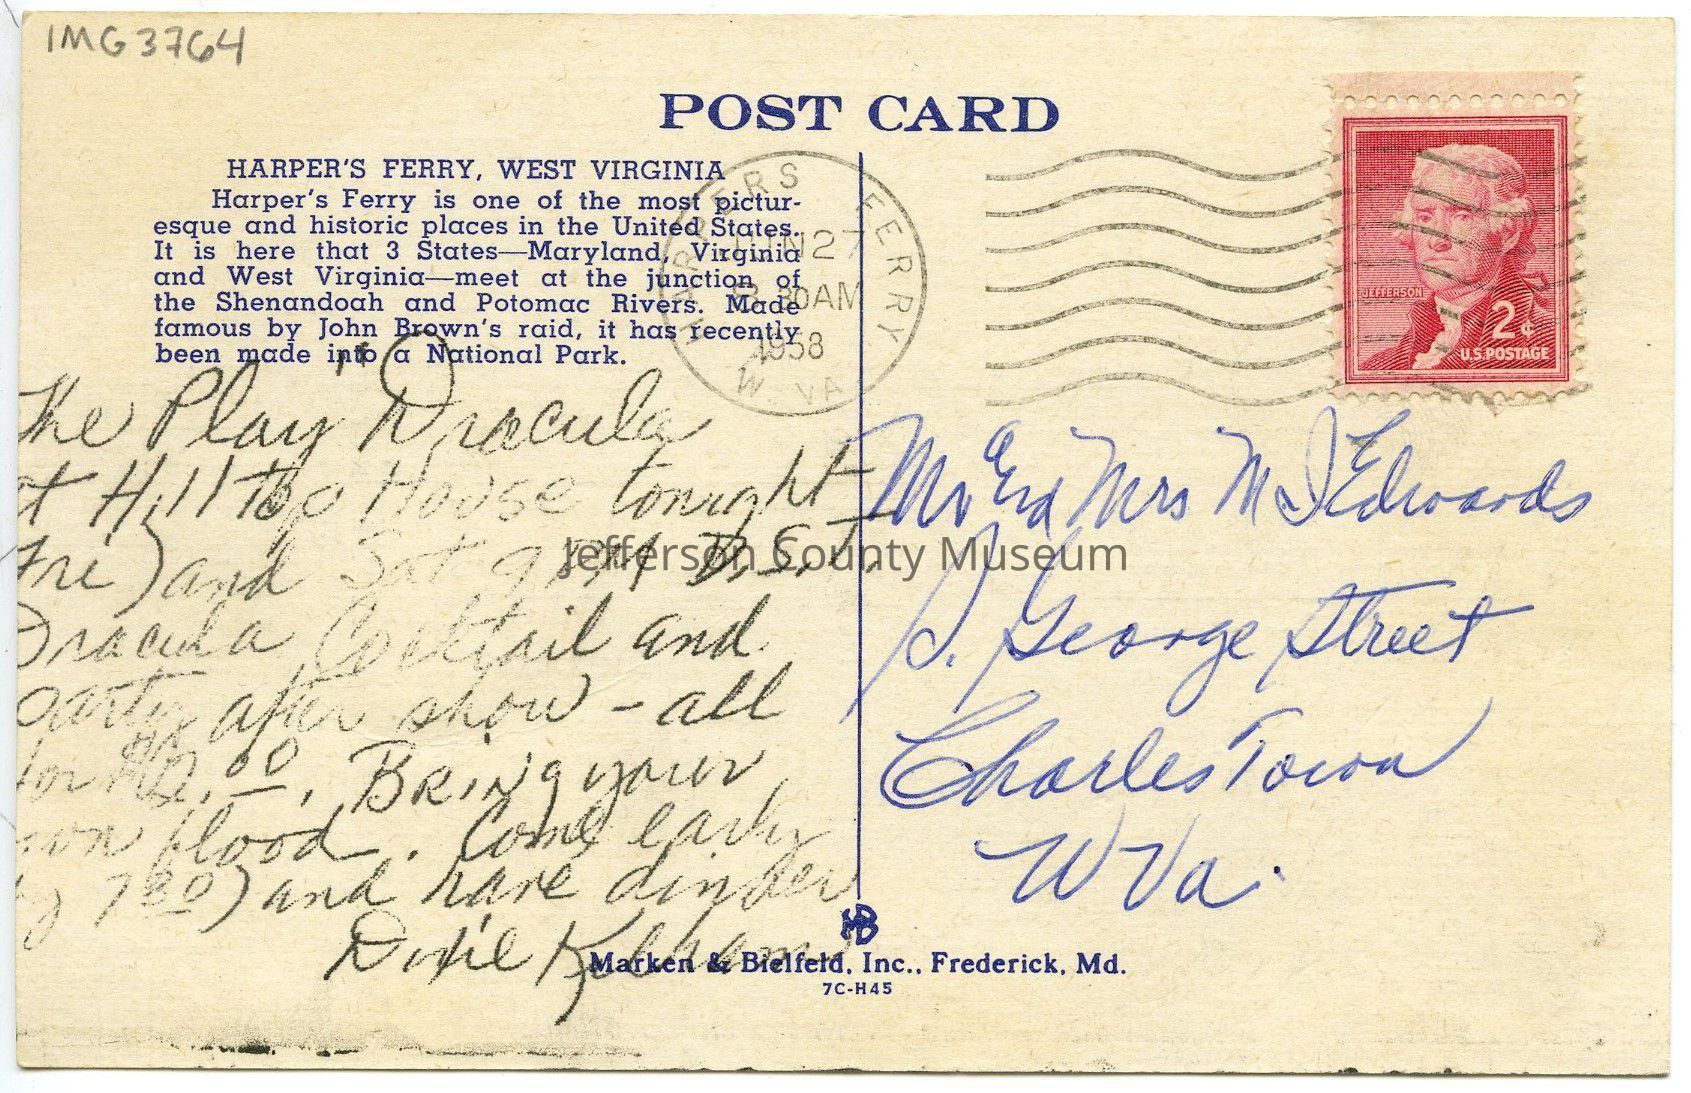 IMG3764
POST CARD
HARPER'S FERRY, WEST VIRGINIA
Harper's Ferry is one of the most pictur-
esque and historic places in the United States.
It is here that 3 States—Maryland, Virginia
and West Virginia—meet at the junction of
the Shenandoah and Potomac Rivers. Made
famous by John Brown's raid, it has recently
been made into a National Park.
HARPERS FERRY
JUN 27
8 30AM
1958
W. VA
JEFFERSON
2¢
U.S. POSTAGE
The Play "Dracula
at Hill top House tonight
Fri) and Sat 9 PM D.S.T.
Dracula Cocktail and
party after show - all
for .00. Bring your
own blood. Come early
by 7 30) and have dinner
Dixie
Mr and Mrs M J Edwards
S. George Street
Charles Town
W Va.
Jefferson County Museum
MB
Marken & Bielfeld, Inc., Frederick, Md.
7C-H45